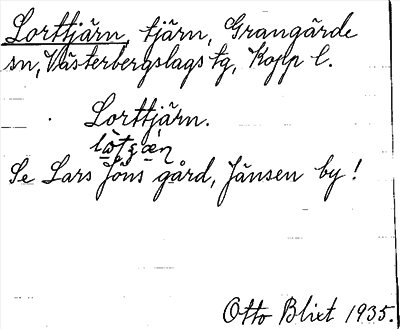 Lorttjärn, tjärn, Grangärde
sn, Västerbergslags tg, Kopp l.
Lorttjärn.
Se Lars Jöns gård, Jänsen by!
Otto Blixt 1935.